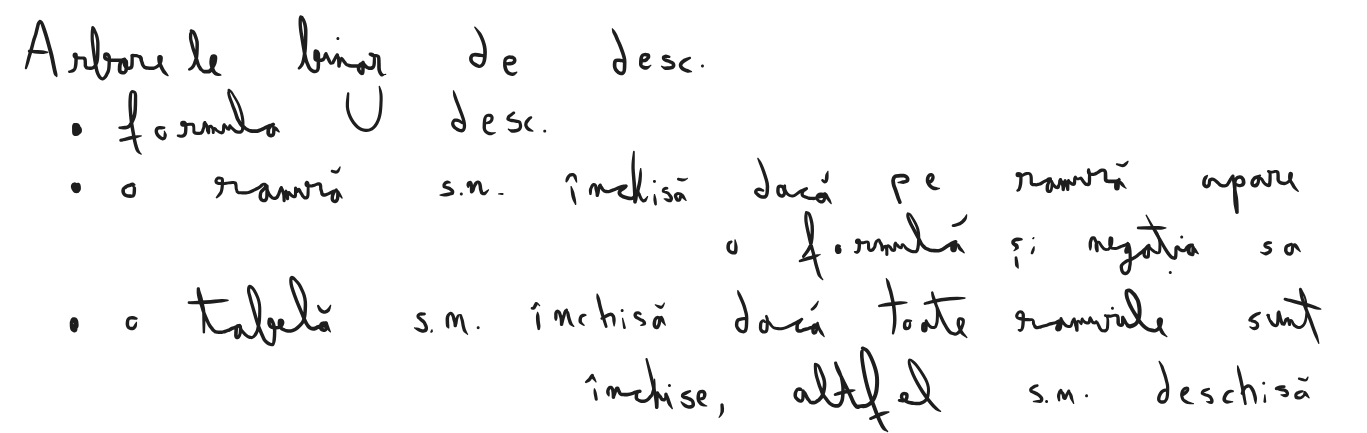 Arborele binar de desc.
• formula U desc.
• o ramură s.n. închisă dacă pe ramură apare
o formulă și negația sa
• o tabelă s.n. închisă dacă toate ramurile sunt
închise, altfel s.n. deschisă